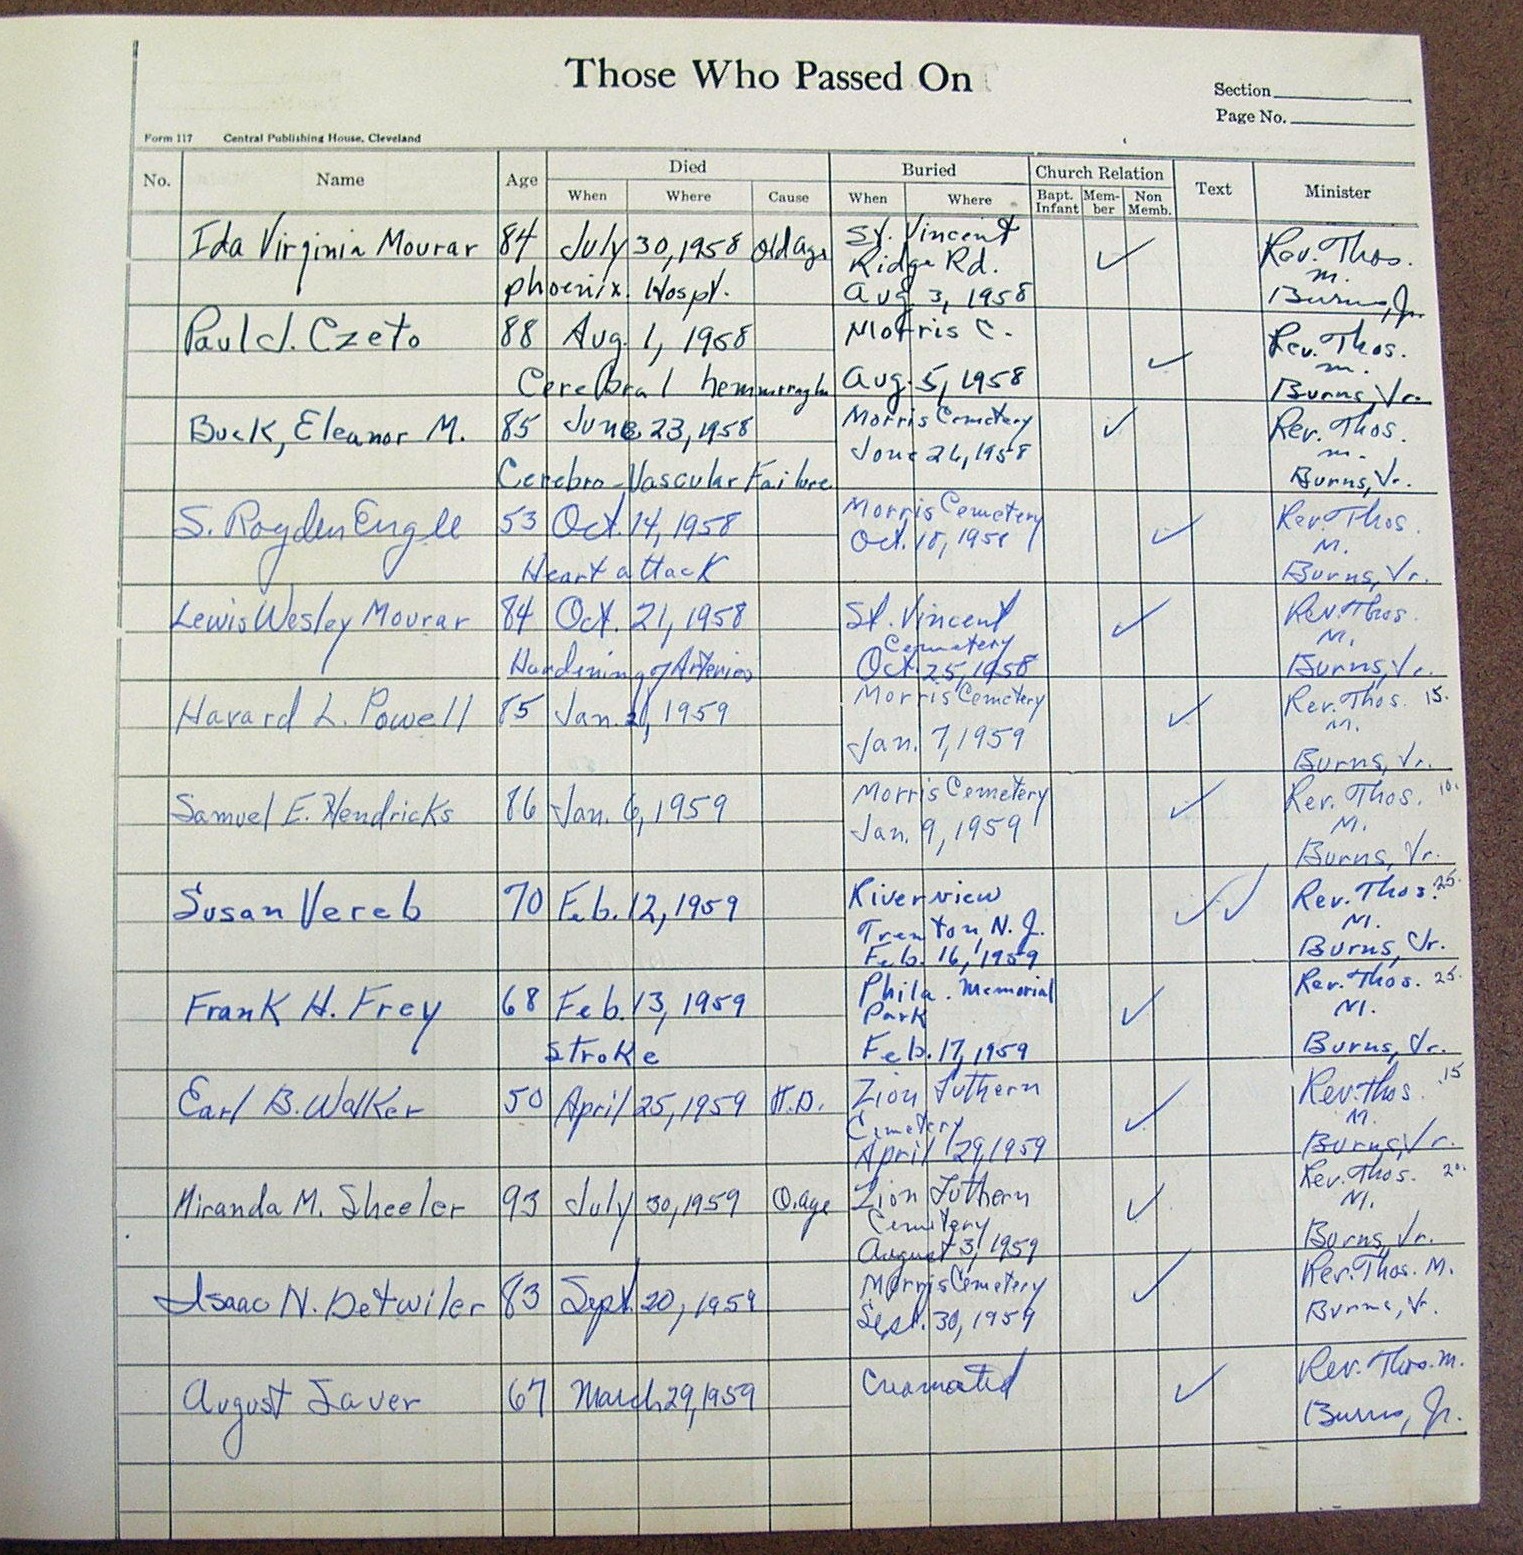 Those Who Passed On
Section
Page No.
Form 117 Central Publishing House, Cleveland
No. Name Age Died Buried Church Relation Text Minister
When Where Cause When Where Bapt. Infant Mem-ber Non Memb.
Ida Virginia Mourar 84 July 30, 1958 old age St. Vincent Rev. Thos.
Ridge Rd. m.
phoenix Hospt. Aug 3, 1958 Burns, Jr.
Paul J. Czeto 88 Aug. 1, 1958 Morris C. Rev. Thos.
m.
Cerebral hemmorraghe Aug. 5, 1958 Burns, Jr.
Buck, Eleanor M. 85 June 23, 1958 Morris Cemetery Rev. Thos.
June 26, 1958 m.
Cerebro-Vascular Failure Burns, Jr.
S. Rogden Engle 53 Oct. 14, 1958 Morris Cemetery Rev. Thos.
Oct. 18, 1958 M.
Heart attack Burns, Jr.
Lewis Wesley Mourar 84 Oct. 21, 1958 St. Vincent Rev. Thos.
Cemetery M.
Hardining of Arteries Oct. 25, 1958 Burns, Jr.
Havard L. Powell 85 Jan. 1959 Morris Cemetery Rev. Thos. 15.
M.
Jan. 7, 1959 Burns, Jr.
Samuel E. Hendricks 86 Jan. 6, 1959 Morris Cemetery Rev. Thos. 10.
Jan. 9, 1959 M.
Burns, Jr.
Susan Vereb 70 Feb. 12, 1959 Riverview Rev. Thos. 25.
Trenton, N. J. M.
Feb. 16, 1959 Burns, Jr.
Frank H. Frey 68 Feb. 13, 1959 Phila. Memorial Rev. Thos. 25.
Park M.
stroke Feb. 17, 1959 Burns, Jr.
Earl B. Walker 50 April 25, 1959 H.D. Zion Luthern Rev. Thos. 15
Cemetery M.
April 29, 1959 Burns, Jr.
Miranda M. Sheeler 93 July 30, 1959 O. age Zion Luthern Rev. Thos. 20.
Cemetery M.
August 3, 1959 Burns, Jr.
Isaac N. Detwiler 83 Sept. 20, 1959 Morris Cemetery Rev. Thos. M.
Sept. 30, 1959 Burns, Jr.
August Saver 67 March 29, 1959 Creamated Rev. Thos. m.
Burns, Jr.